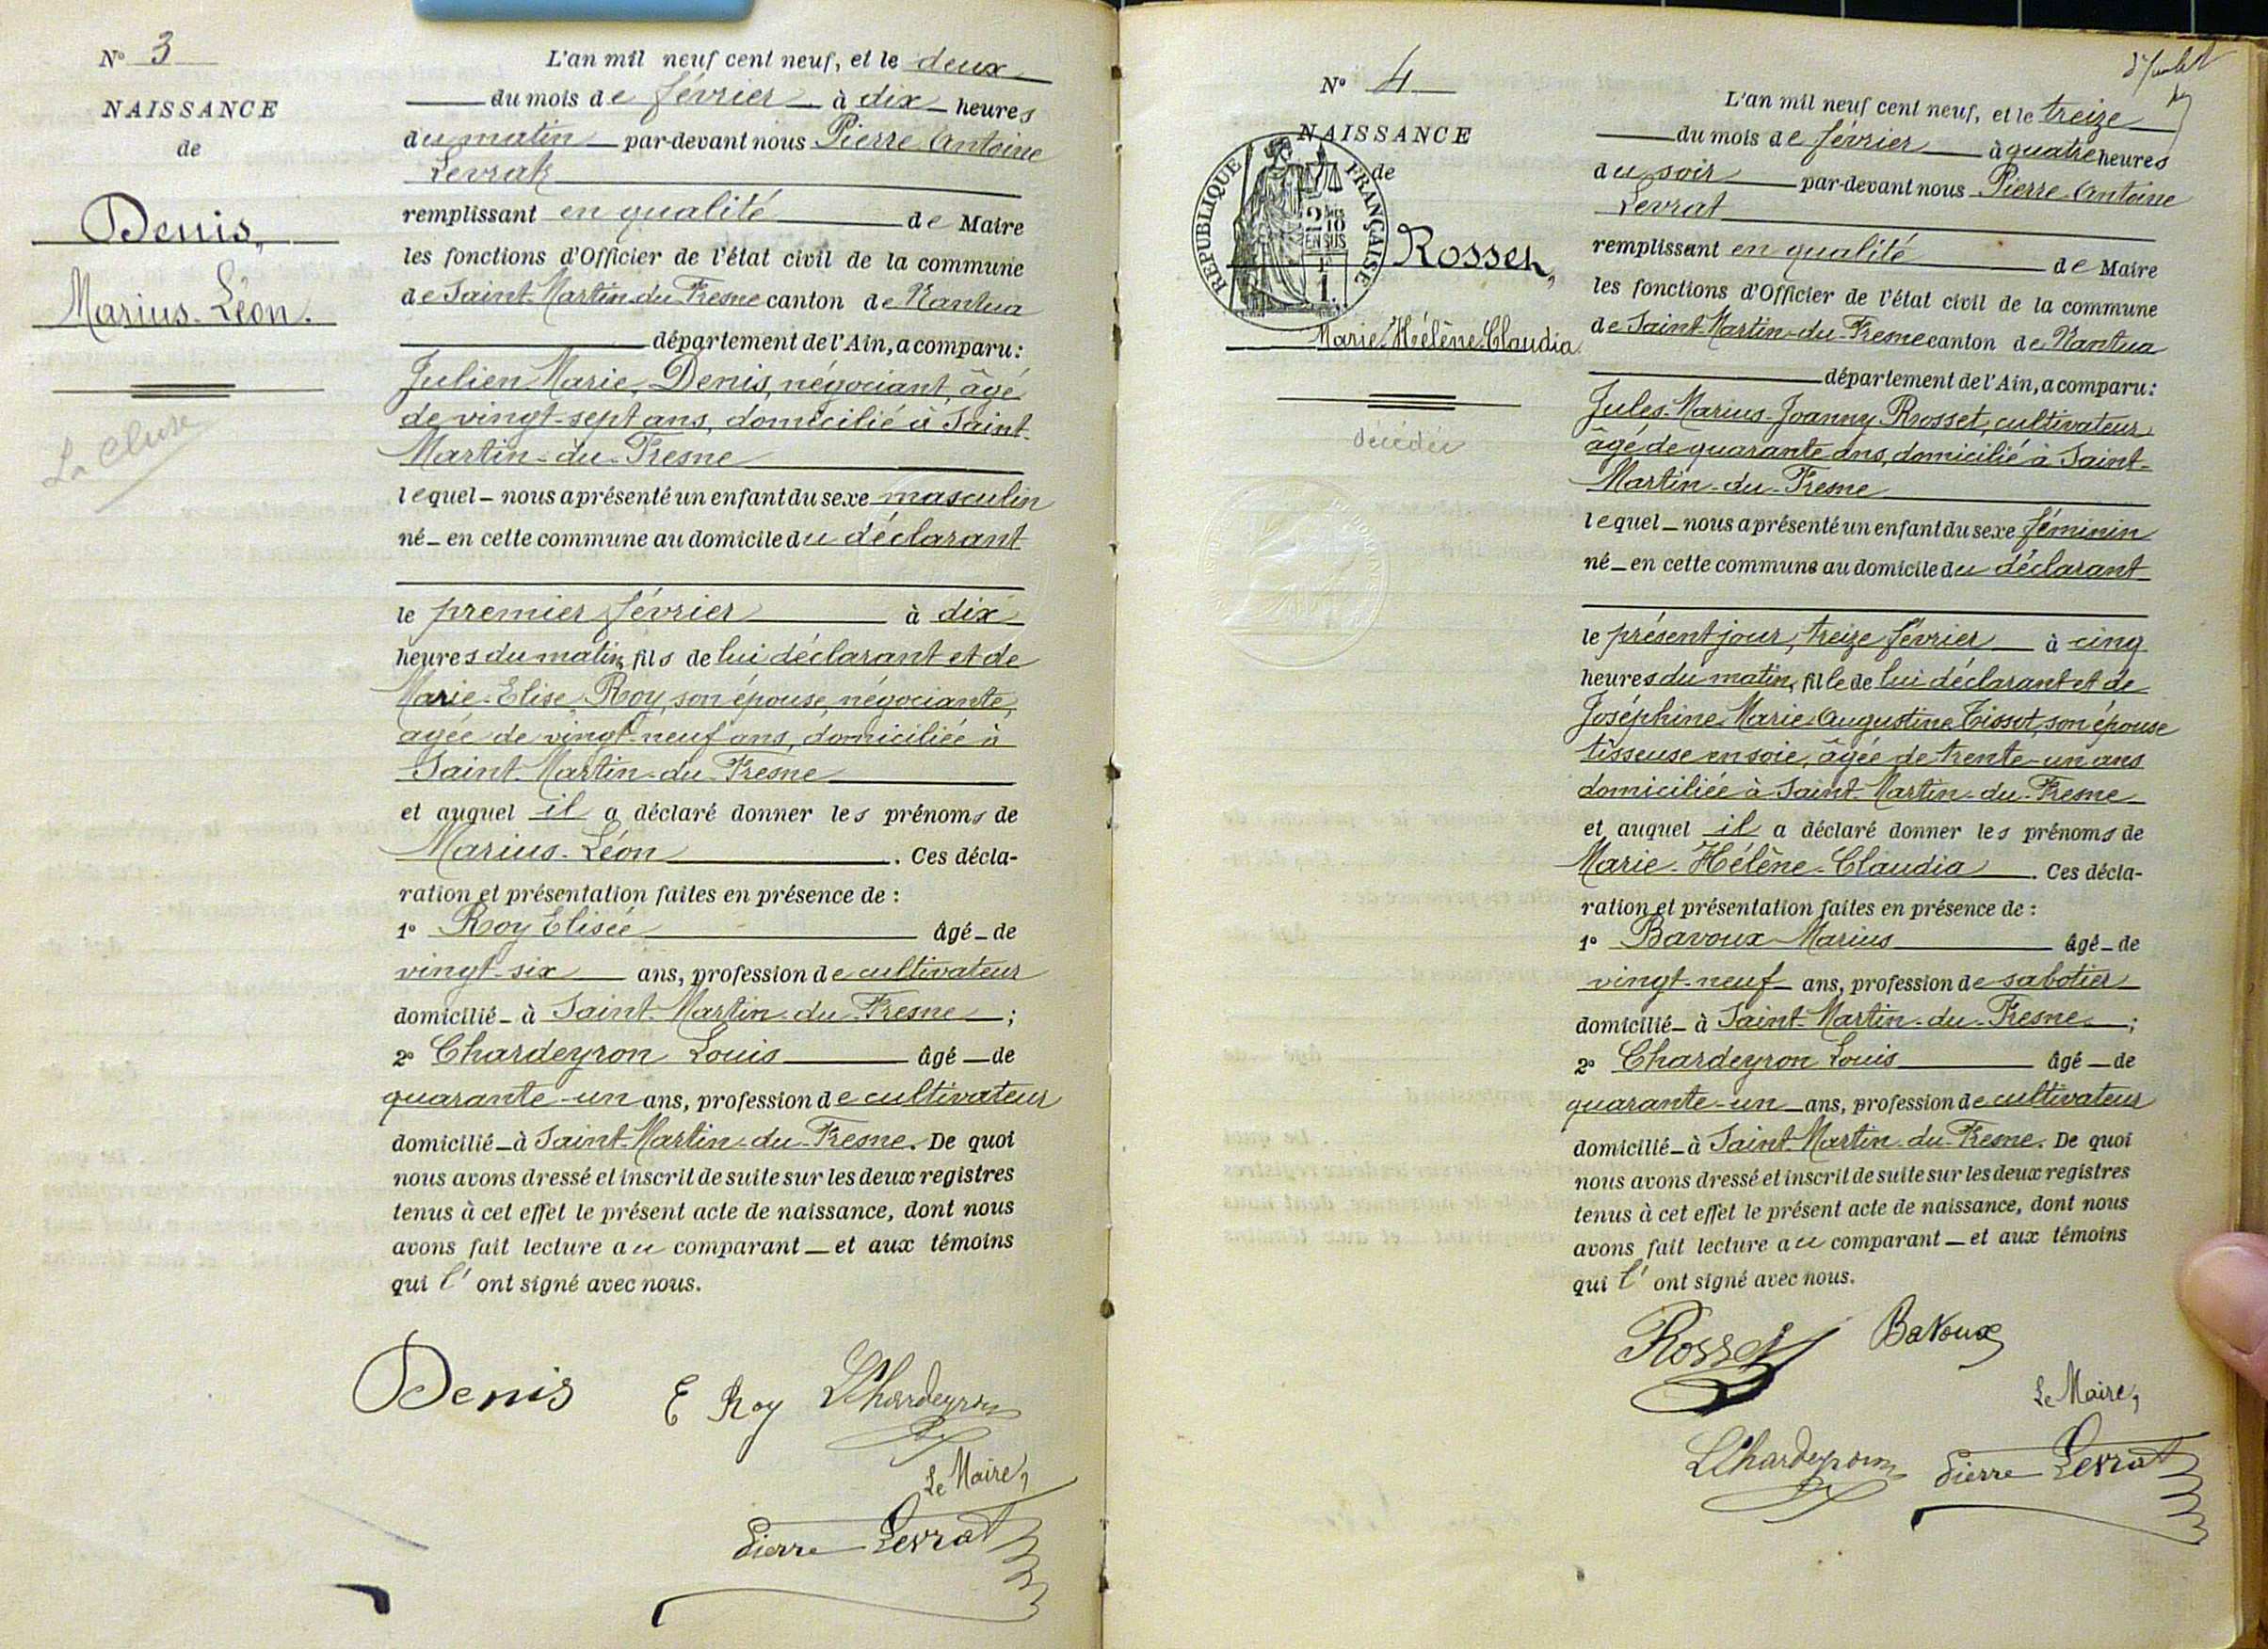 N° 3
NAISSANCE
de
Denis,
Marius-Léon.
La Cluse
L'an mil neuf cent neuf, et le deux
du mois de février à dix heures
du matin par-devant nous Pierre Antoine
Levrat
remplissant en qualité de Maire
les fonctions d'Officier de l'état civil de la commune
de Saint-Martin-du-Fresne canton de Nantua
département de l'Ain, a comparu:
Julien Marie, Denis, négociant, âgé
de vingt-sept ans, domicilié à Saint-
Martin-du-Fresne
lequel nous a présenté un enfant du sexe masculin
né en cette commune au domicile du déclarant
le premier février à dix
heures du matin, fils de lui déclarant et de
Marie-Elise Roy, son épouse, négociante,
agée de vingt-neuf ans, domiciliée à
Saint-Martin-du-Fresne
et auquel il a déclaré donner les prénoms de
Marius-Léon. Ces décla-
ration et présentation faites en présence de :
1° Roy Elisée âgé de
vingt-six ans, profession de cultivateur
domicilié à Saint-Martin-du-Fresne ;
2° Chardeyron Louis âgé de
quarante-un ans, profession de cultivateur
domicilié à Saint-Martin-du-Fresne. De quoi
nous avons dressé et inscrit de suite sur les deux registres
tenus à cet effet le présent acte de naissance, dont nous
avons fait lecture au comparant et aux témoins
qui l'ont signé avec nous.
Denis E Roy LChardeyron
Le Maire,
Pierre Levrat
N° 4
NAISSANCE
de
REPUBLIQUE FRANÇAISE
2 10
EN SUS
1F
1.
Rosset,
Marie-Hélène-Claudia
décédée
L'an mil neuf cent neuf, et le treize
du mois de février à quatre heures
du soir par-devant nous Pierre Antoine
Levrat
remplissant en qualité de Maire
les fonctions d'Officier de l'état civil de la commune
de Saint-Martin-du-Fresne canton de Nantua
département de l'Ain, a comparu:
Jules-Marius-Joanny Rosset, cultivateur
âgé de quarante ans, domicilié à Saint-
Martin-du-Fresne
lequel nous a présenté un enfant du sexe féminin
né en cette commune au domicile du déclarant
le présent jour, treize février à cinq
heures du matin, fille de lui déclarant et de
Joséphine Marie Augustine Tissot, son épouse
tisseuse en soie, âgée de trente-un ans
domiciliée à Saint-Martin-du-Fresne
et auquel il a déclaré donner les prénoms de
Marie-Hélène-Claudia. Ces décla-
ration et présentation faites en présence de :
1° Bavoux Marius âgé de
vingt-neuf ans, profession de sabotier
domicilié à Saint-Martin-du-Fresne ;
2° Chardeyron Louis âgé de
quarante-un ans, profession de cultivateur
domicilié à Saint-Martin-du-Fresne. De quoi
nous avons dressé et inscrit de suite sur les deux registres
tenus à cet effet le présent acte de naissance, dont nous
avons fait lecture au comparant et aux témoins
qui l'ont signé avec nous.
Rosset Bavoux
Le Maire,
LChardeyron Pierre Levrat